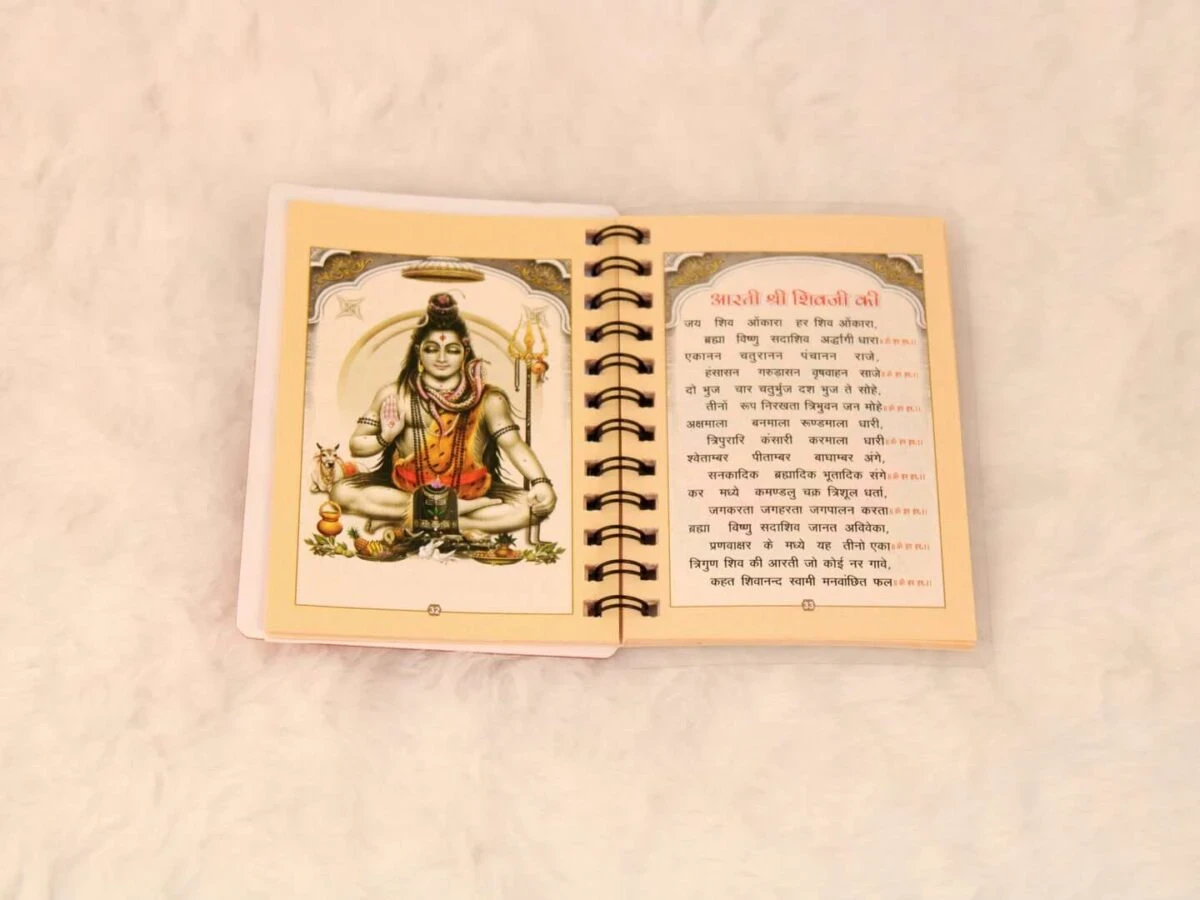 32
आरती श्री शिवजी की
जय शिव ओंकारा हर शिव ओंकारा,
ब्रह्मा विष्णु सदाशिव अर्द्धांगी धारा॥
एकानन चतुरानन पंचानन राजे,
हंसासन गरुडासन वृषवाहन साजे॥
दो भुज चार चतुर्भुज दश भुज ते सोहे,
तीनों रूप निरखता त्रिभुवन जन मोहे
अक्षमाला बनमाला रूण्डमाला धारी,
त्रिपुरारि कंसारी करमाला धारी
श्वेताम्बर पीताम्बर बाघाम्बर अंगे,
सनकादिक ब्रह्मादिक भूतादिक संगे
कर मध्ये कमण्डलु चक्र त्रिशूल धर्ता,
जगकरता जगहरता जगपालन करता
ब्रह्मा विष्णु सदाशिव जानत अविवेका,
प्रणवाक्षर के मध्ये यह तीनो एका
त्रिगुण शिव की आरती जो कोई नर गावे,
कहत शिवानन्द स्वामी मनवांछित फल
33